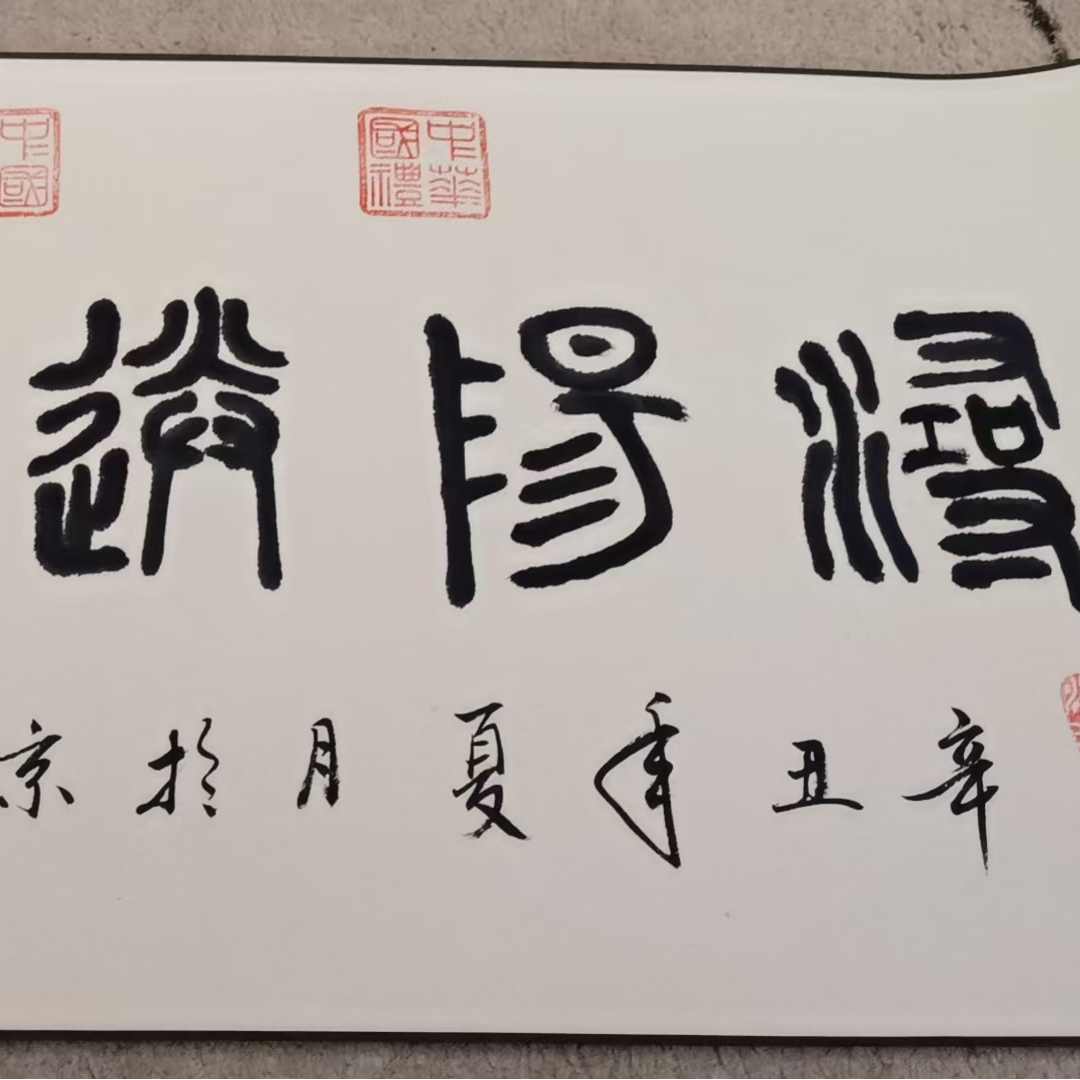 中華國禮
中國
潯陽送
辛丑年夏月於京